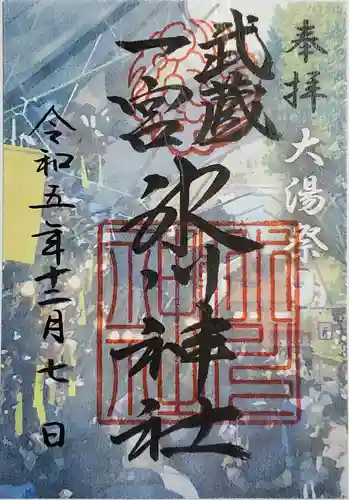 奉拝
大湯祭
武蔵
一宮
氷川神社
令和五年十二月七日